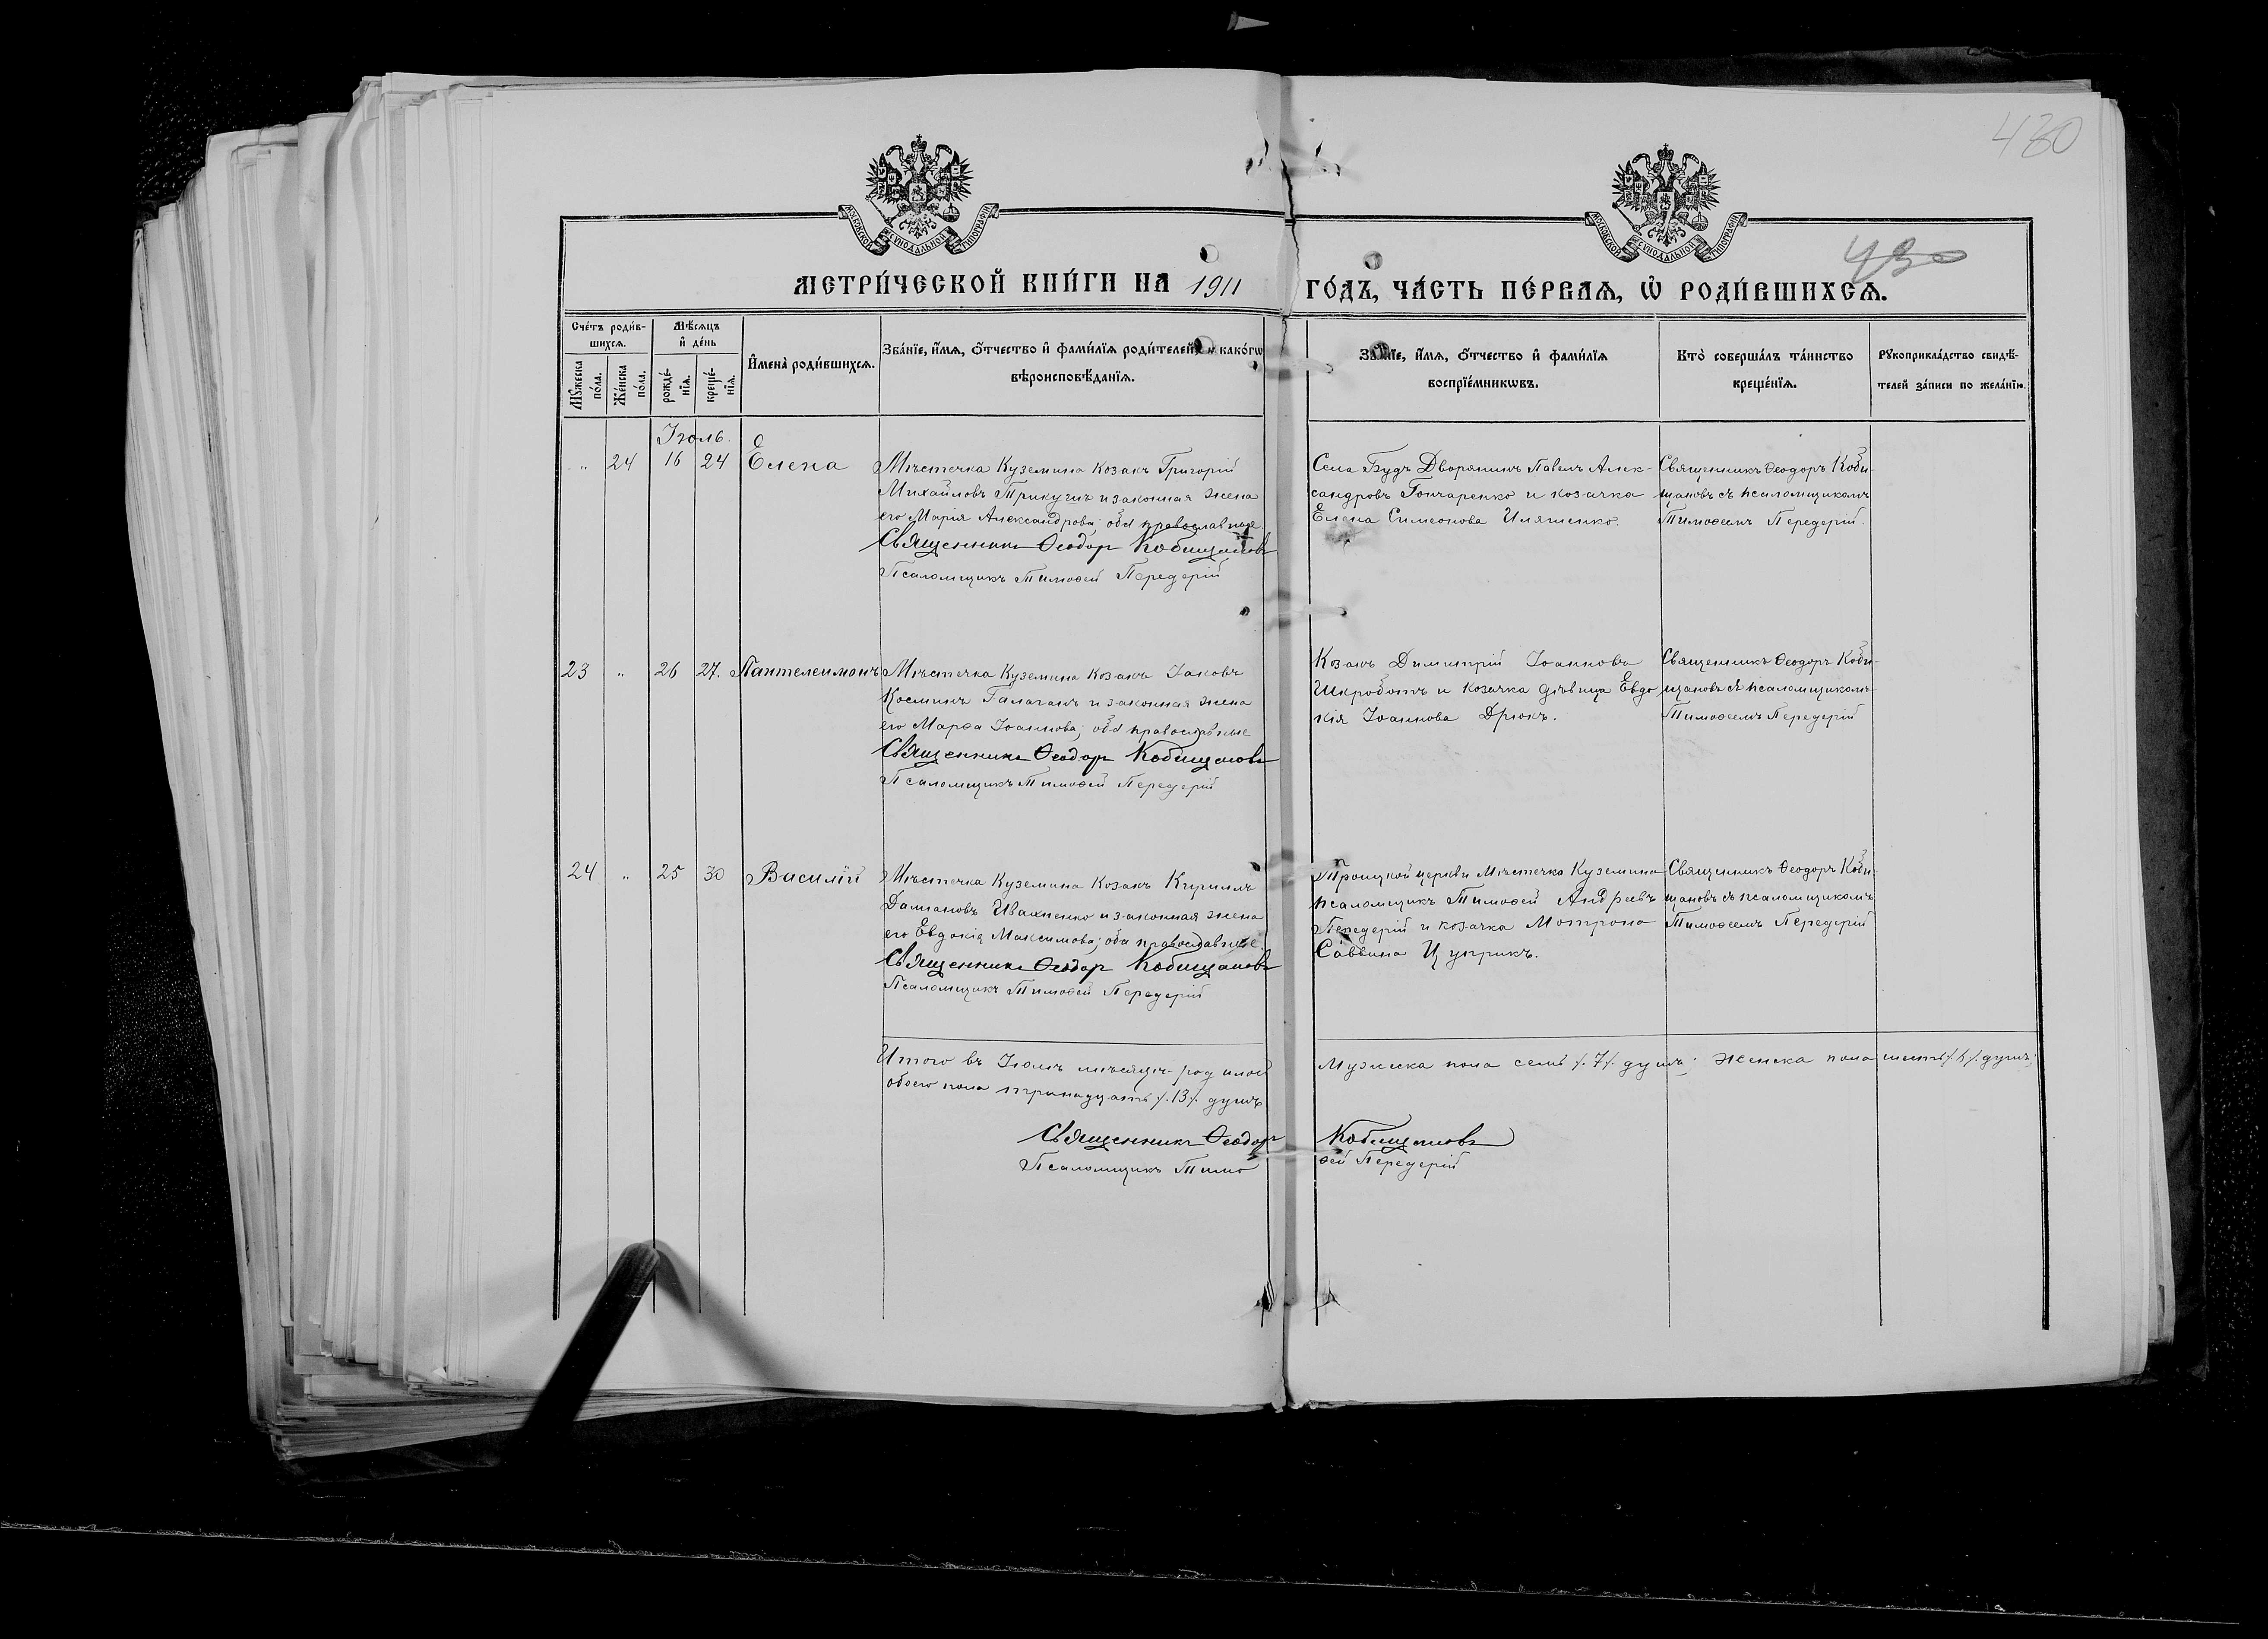 430
430
МОСКОВСКОЙ СѴНОДАЛЬНОЙ ТИПОГРАФІИ
МОСКОВСКОЙ СѴНОДАЛЬНОЙ ТИПОГРАФІИ
МЕТРИ́ЧЕСКОЙ КНИ́ГИ НА 1911 ГО́ДЪ, ЧА́СТЬ ПЕ́РВАѦ, Ѡ РОДИ́ВШИХСѦ.
Сче́тъ роди́в-
шихсѧ.
Мꙋ́жеска по́ла.
Же́нска по́ла.
Мѣ́сѧцъ
и҆ де́нь
рожде́-
нїѧ.
креще́-
нїѧ.
И҆мена̀ роди́вшихсѧ.
Зва́нїе, и҆́мѧ, ѻ҆́тчество и҆ фами́лїѧ роди́телей, и҆ како́гѡ
вѣроисповѣ́данїѧ.
Зва́нїе, и҆́мѧ, ѻ҆́тчество и҆ фами́лїѧ
воспрїе́мникѡвъ.
Кто̀ соверша́лъ та́инство
креще́нїѧ.
Рꙋкоприкла́дство свидѣ́-
телей за́писи по жела́нїю.
Іюль.
„ 24 16 24 Елена
Мѣстечка Куземина козакъ Григорій
Михайловъ Трикучъ и законная жена
его Марія Александрова; оба православные.
Священникъ Ѳеодоръ Кобищановъ
Псаломщикъ Тимоѳей Передерій
Села Будъ Дворянинъ Павелъ Алек-
сандровъ Гончаренко и козачка
Елена Симеонова Иляшенко.
Священникъ Ѳеодоръ Коби-
щановъ съ псаломщикомъ
Тимоѳеемъ Передерій.
23 „ 26 27. Пантелеимонъ
Мѣстечка Куземина козакъ Іаковъ
Косминъ Галаганъ и законная жена
его Марѳа Іоаннова; оба православные
Священникъ Ѳеодоръ Кобищановъ
Псаломщикъ Тимоѳей Передерій
Козакъ Димитрій Іоанновъ
Шкроботъ и козачка дѣвица Евдо
кія Іоаннова Дрюкъ.
Священникъ Ѳеодоръ Коби-
щановъ съ псаломщикомъ
Тимоѳеемъ Передерій
24 „ 25 30 Василій
Мѣстечка Куземина козакъ Кириллъ
Даміановъ Ивахненко и законная жена
его Евдокія Максимова; оба православные.
Священникъ Ѳеодоръ Кобищановъ
Псаломщикъ Тимоѳей Передерій
Троицкой церкви мѣстечка Куземина
псаломщикъ Тимоѳей Андреевъ
Передерій и козачка Мотрона
Саввина Цуприкъ.
Священникъ Ѳеодоръ Коби-
щановъ съ псаломщикомъ
Тимоѳеемъ Передерій
Итого въ Іюлѣ мѣсяцѣ родилось Мужеска пола семь /.7/. душъ; женска пола шесть /.6/. душъ;
обоего пола тринадцать /.13/. душъ.
Священникъ Ѳеодоръ Кобищановъ
Псаломщикъ Тимоѳей Передерій